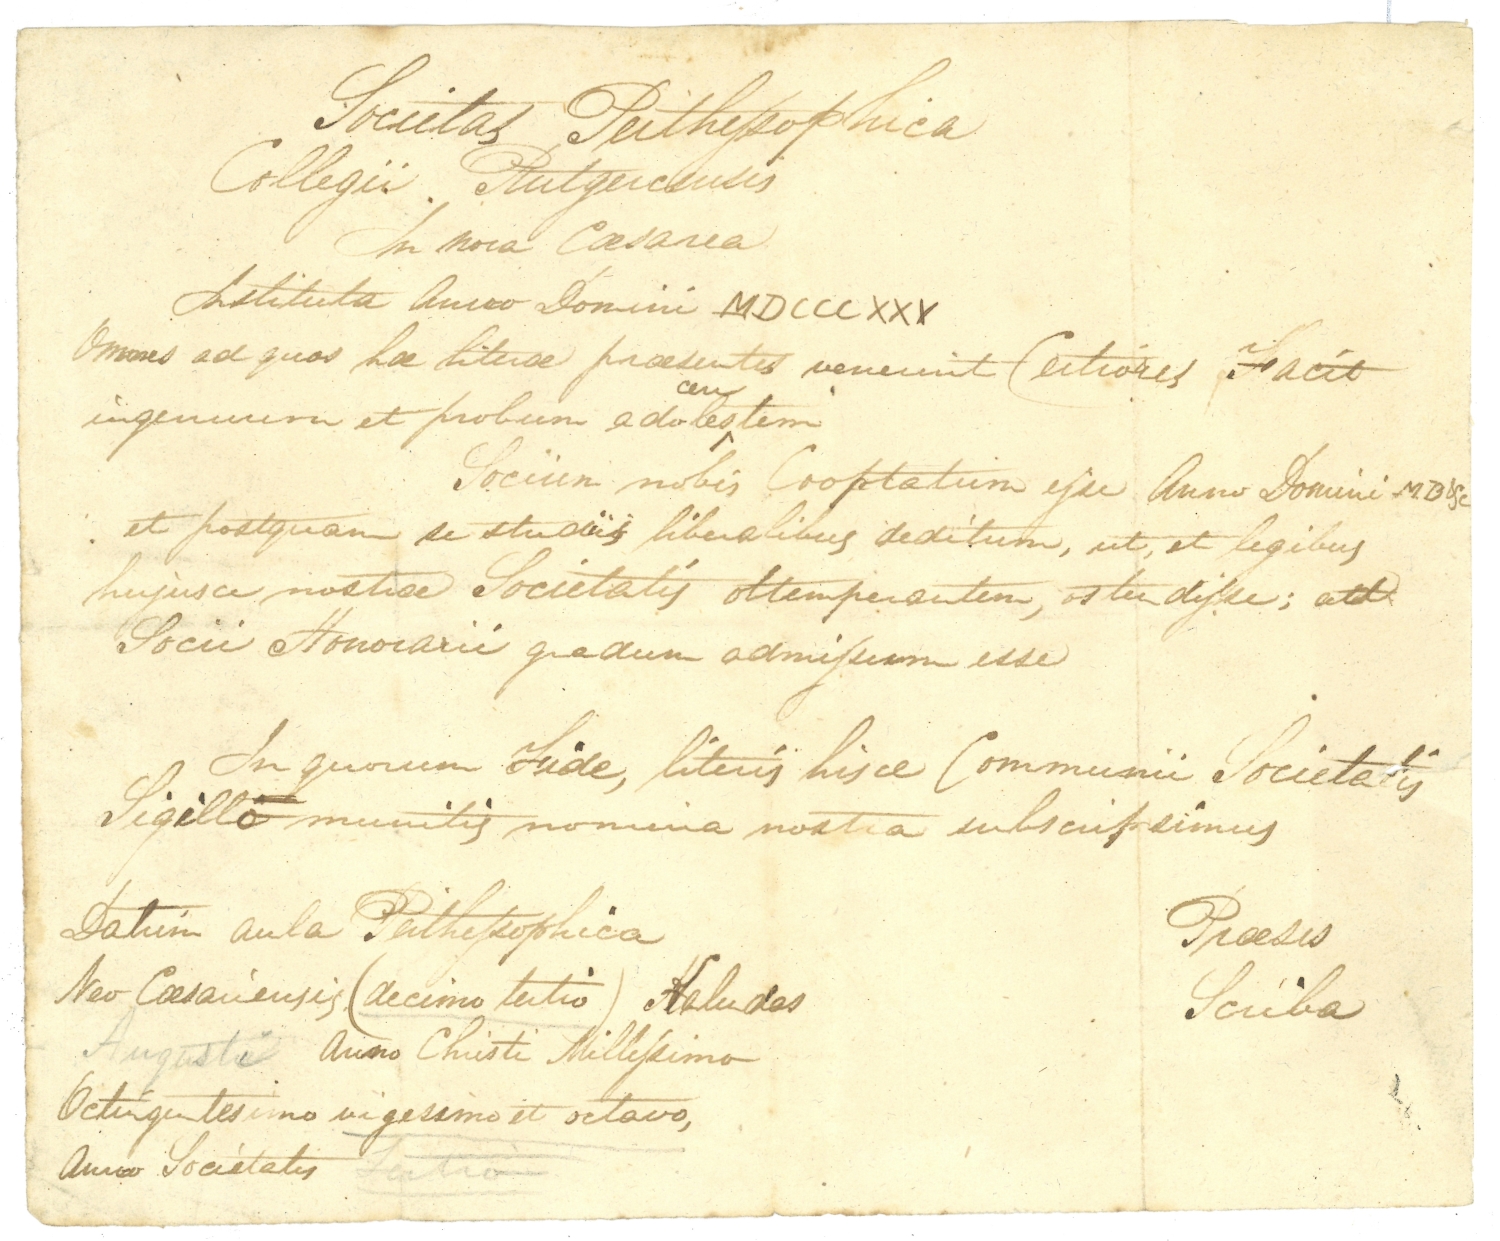 Societas Peithessophica
Collegii Rutgerensis
In nova Cæsarea
Instituta Anno Domini MDCCCXXV
Omnes ad quos hæ literæ præsentes venerint Certiores Facit
ingenuum et probum adolescentem
Socium nobis Cooptatum esse Anno Domini MD
et postquam se studiis liberalibus deditum, ut, et legibus
hujusce nostræ Societatis obtemperantem, ostendisse; ad
Socii Honorarii gradum admissum esse
In quorum Fide, literis hisce Communii Societatis
Sigillo munitis nomina nostra subscripsimus
Datum aula Peithessophica
Præses
Neo Cæsariensis (decimo tertio) Kalendas
Scriba
Augusti Anno Christi Millessimo
Octingentesimo vigessimo et octavo,
Anno Societatis Tertio